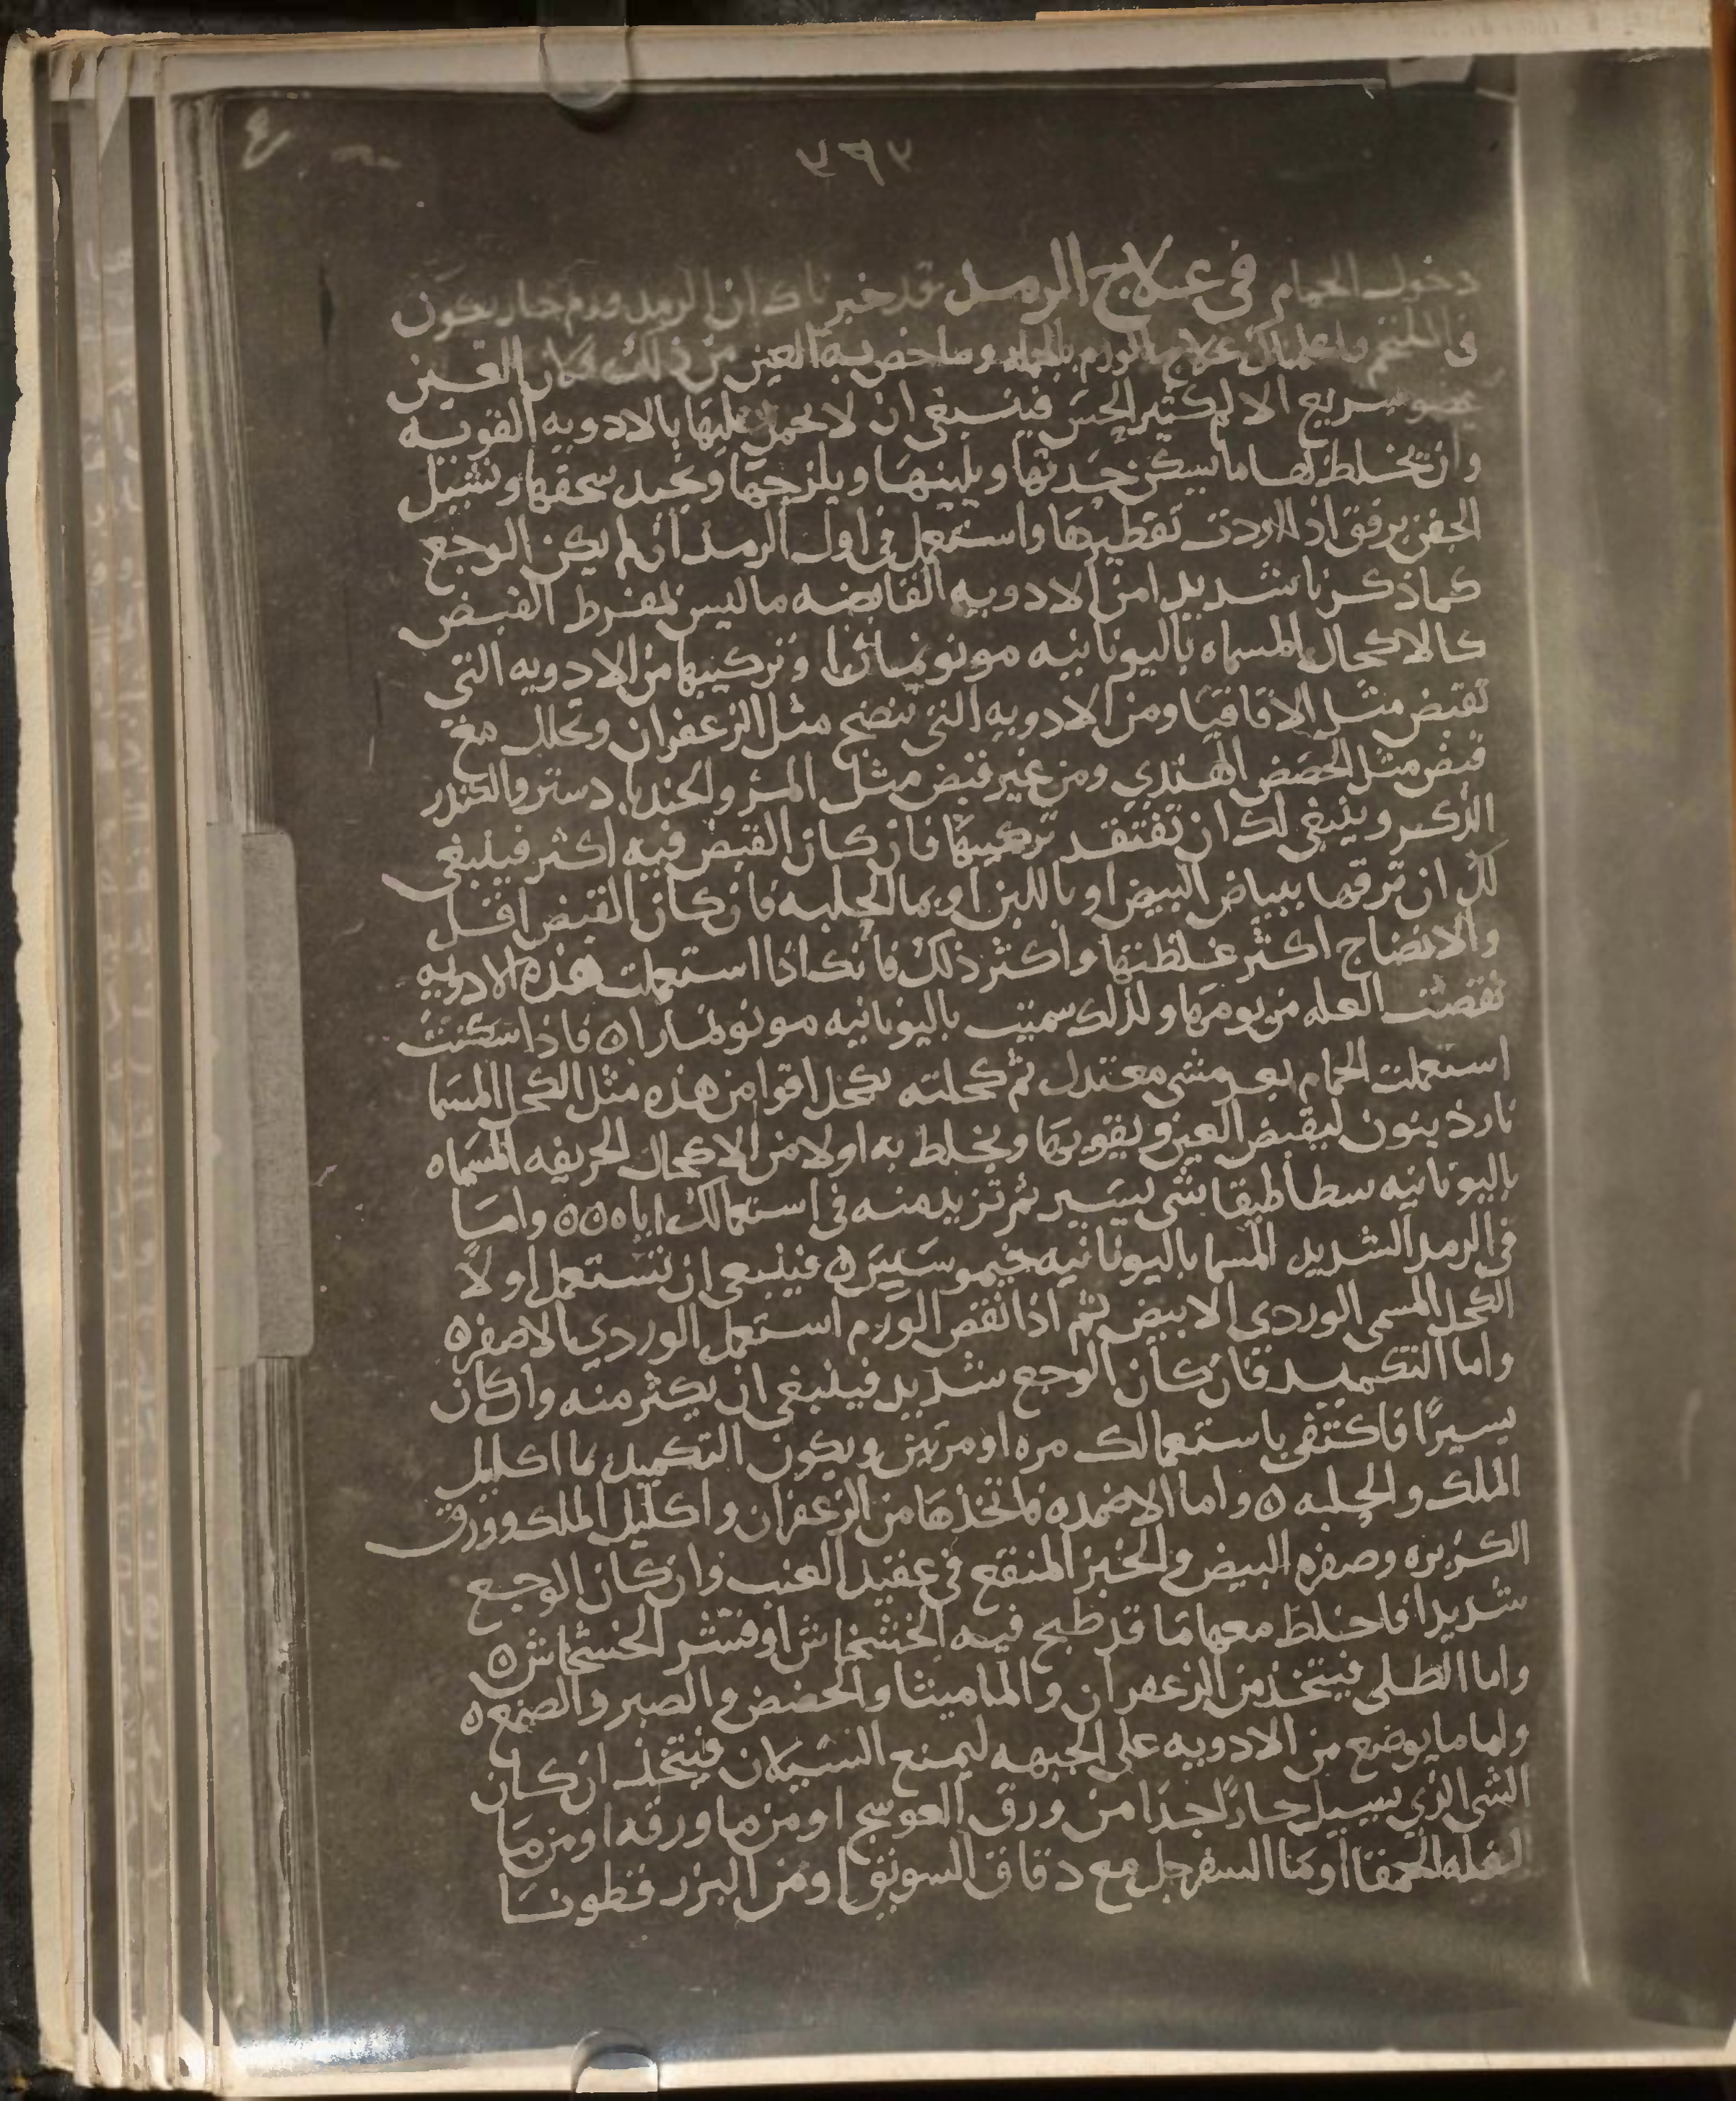 ٧٦٣
دخول الحمام في علاج الرمد قد خبرناك ان الرمد ورم حار يكون
في الملتحم علاج الورم وما خص به العين من ذلك فلان العين
عضو سريع الالم كثير الحس فينبغي ان لا يحمل عليها بالادويه القويه
وان تخلط لها ما يسكن حدتها ويلينها ويلزجها وتجيد سحقها وتشيل
الجفن برفق اذا اردت تقطيرها واستعمل في اول الرمد ان لم يكن الوجع
كما ذكرنا شديدا من الادويه القابضه ما ليس بمفرط القبض
كالاكحال المسماه باليونانيه مونونمارا وتركيبها من الادويه التي
تقبض مثل الاقاقيا ومن الادويه التي تنضج مثل الزعفران وتحلل مع
قبض مثل الحضض الهندي ومن غير قبض مثل المر والجندبادستر والكندر
الذكر وينبغي لك ان تفتقد تركيبها فان كان القبض فيه اكثر فينبغي
لك ان ترقها ببياض البيض او باللبن او بما الحلبه فان كان القبض اقل
والانضاج اكثر غلظتها واكثر ذلك فانك اذا استعملت هذه الادويه
نقصت العله من يومها ولذلك سميت باليونانيه مونونمارا ه فاذا سكنت
استعملت الحمام بعد مشي معتدل ثم كحلته بكحل اقوا من هذه مثل الكحل المسما
ناردينون ليقبض العين ويقويها ويخلط به اولا من الاكحال الحريفه المسماه
باليونانيه سطاطيقا شي يسير ثم تزيد منه في استعمالك اياه ه ه واما
في الرمد الشديد المسما باليونانيه خيموسيس ه فينبغي ان تستعمل اولاً
الكحل المسمى الوردي الابيض ثم اذا نقص الورم استعمل الوردي الاصفر ه
واما التكميد فان كان الوجع شديد فينبغي ان يكثر منه وان كان
يسيرًا فاكتفي باستعمالك مره او مرتين ويكون التكميد بما اكليل
الملك والحلبه ه واما الاضمده فاتخذها من الزعفران واكليل الملك وورق
الكزبره وصفره البيض والخبز المنقع في عقيد العنب وان كان الوجع
شديدا فاخلط معها ما قد طبخ فيه الخشخاش او قشر الخشخاش ه
واما الطلي فيتخذ من الزعفران والماميثا والحضض والصبر والصمغ ه
واما ما يوضع من الادويه على الجبهه ليمنع السيلان فيتخذ ان كان
الشي الذي يسيل حارًا جدا من ورق العوسج او من ما ورقه او من ما
البقله الحمقا او ما السفرجل مع دقاق السويق او من البزر قطونا